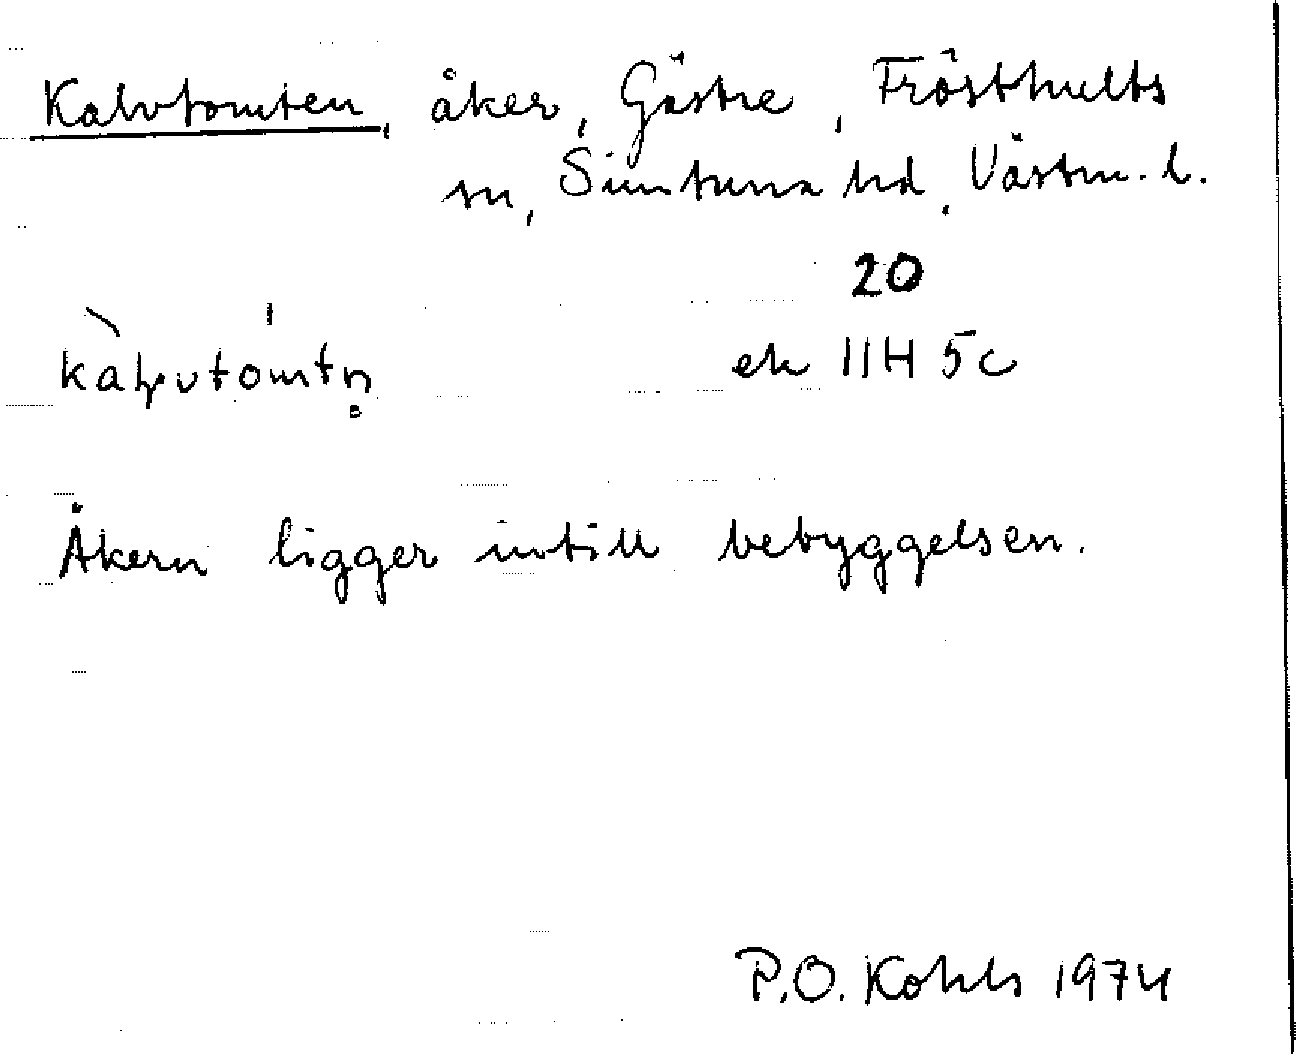 Kalvtomten, åker, Gästre, Frösthults
sn, Simtuna hd, Västm. l.
20
ek 11H 5c
Åkern ligger intill bebyggelsen.
P.O. Kohls 1974